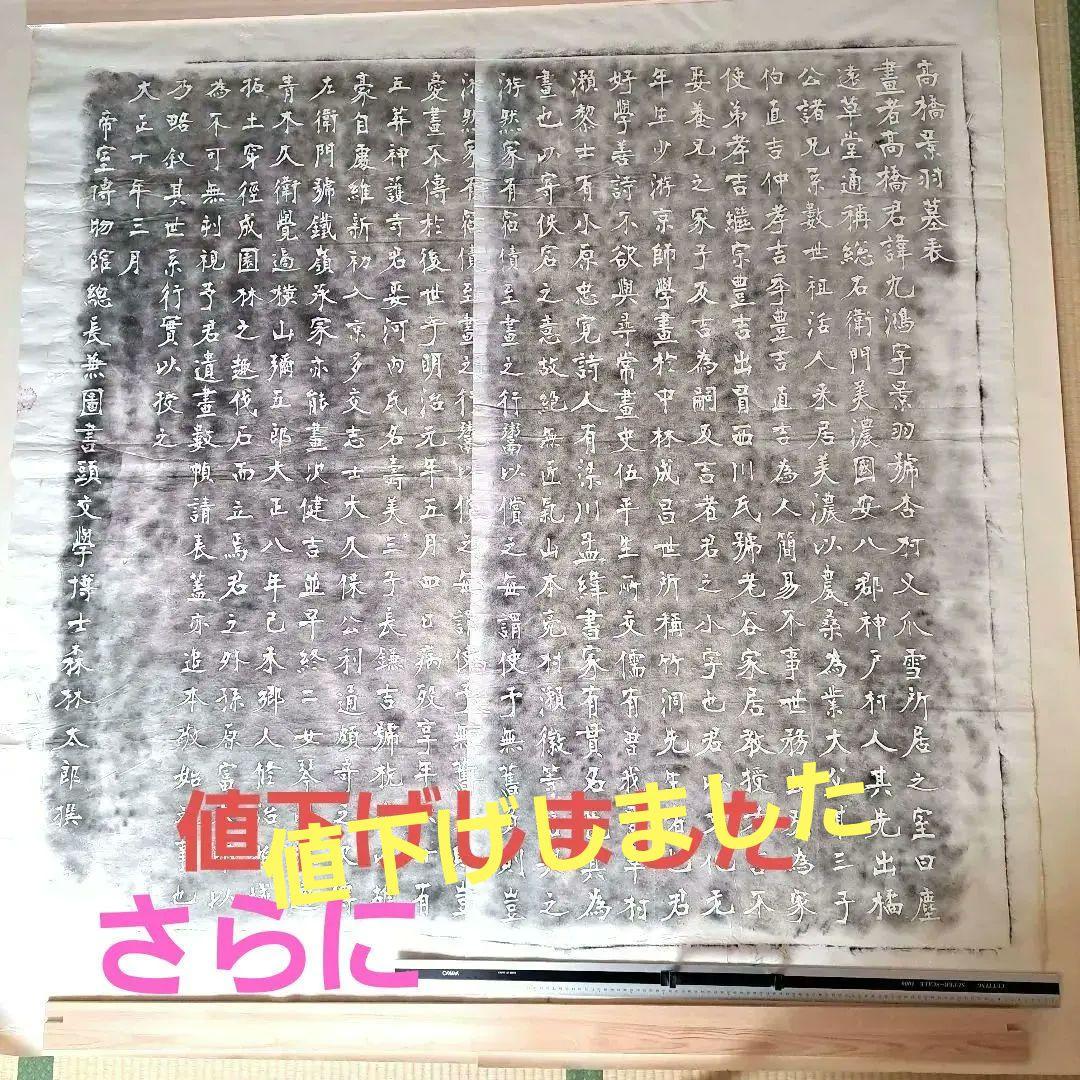 高橋景羽墓表
畫者高橋君諱九鴻字景羽號杏村又爪雪所居之室曰塵
遠草堂通稱總右衛門美濃國安八郡神戶村人其先出橘
公諸兄系數世祖活人来居美濃以農桑為業大父三子
伯直吉仲孝吉季豊吉直吉為人簡易不事世務為家
使弟孝吉繼宗豊吉出冒西川氏號老谷家居教授不
娶養兄之冢子及吉為嗣及吉者君之小字也君文化元
年生少游京師學畫於中林成昌世所稱竹洞先生者也君
好學善詩不欲與尋常畫史伍平生所交儒有曽我村
瀨黎士有小原忠寬詩人有梁川孟緯書家有貫名其為
畫也以寄佚宕之意故絕無匠氣山本亮村瀨徽等之
游然家有宿債至畫之行鬻以償之毎謂使予無舊則豈
游然家有宿債至畫之行鬻以償之毎謂使予無舊豈
愛畫不傳於後世乎明治元年五月四日病殁享年有
五葬神護寺君娶河內氏名壽美三子長鎌吉號
豪自處維新初入京多交志士大久保公利通頗奇之
左衛門號鐵嶺承家亦能畫次健吉並早終二女琴
青木久衛覺過橫山彌五郎大正八年己未鄉人修治
拓土穿徑成園林之趣伐石而立焉君之外孫原富以
為不可無刻視予君遺畫數幀請表蓋亦追本敬始事也
乃略叙其世系行實以授之
大正十年三月
帝室博物館總長兼圖書頭文學博士森林太郎撰
値下げしました
値下げしました
さらに
CUTTING SUPER-SCALE 1000